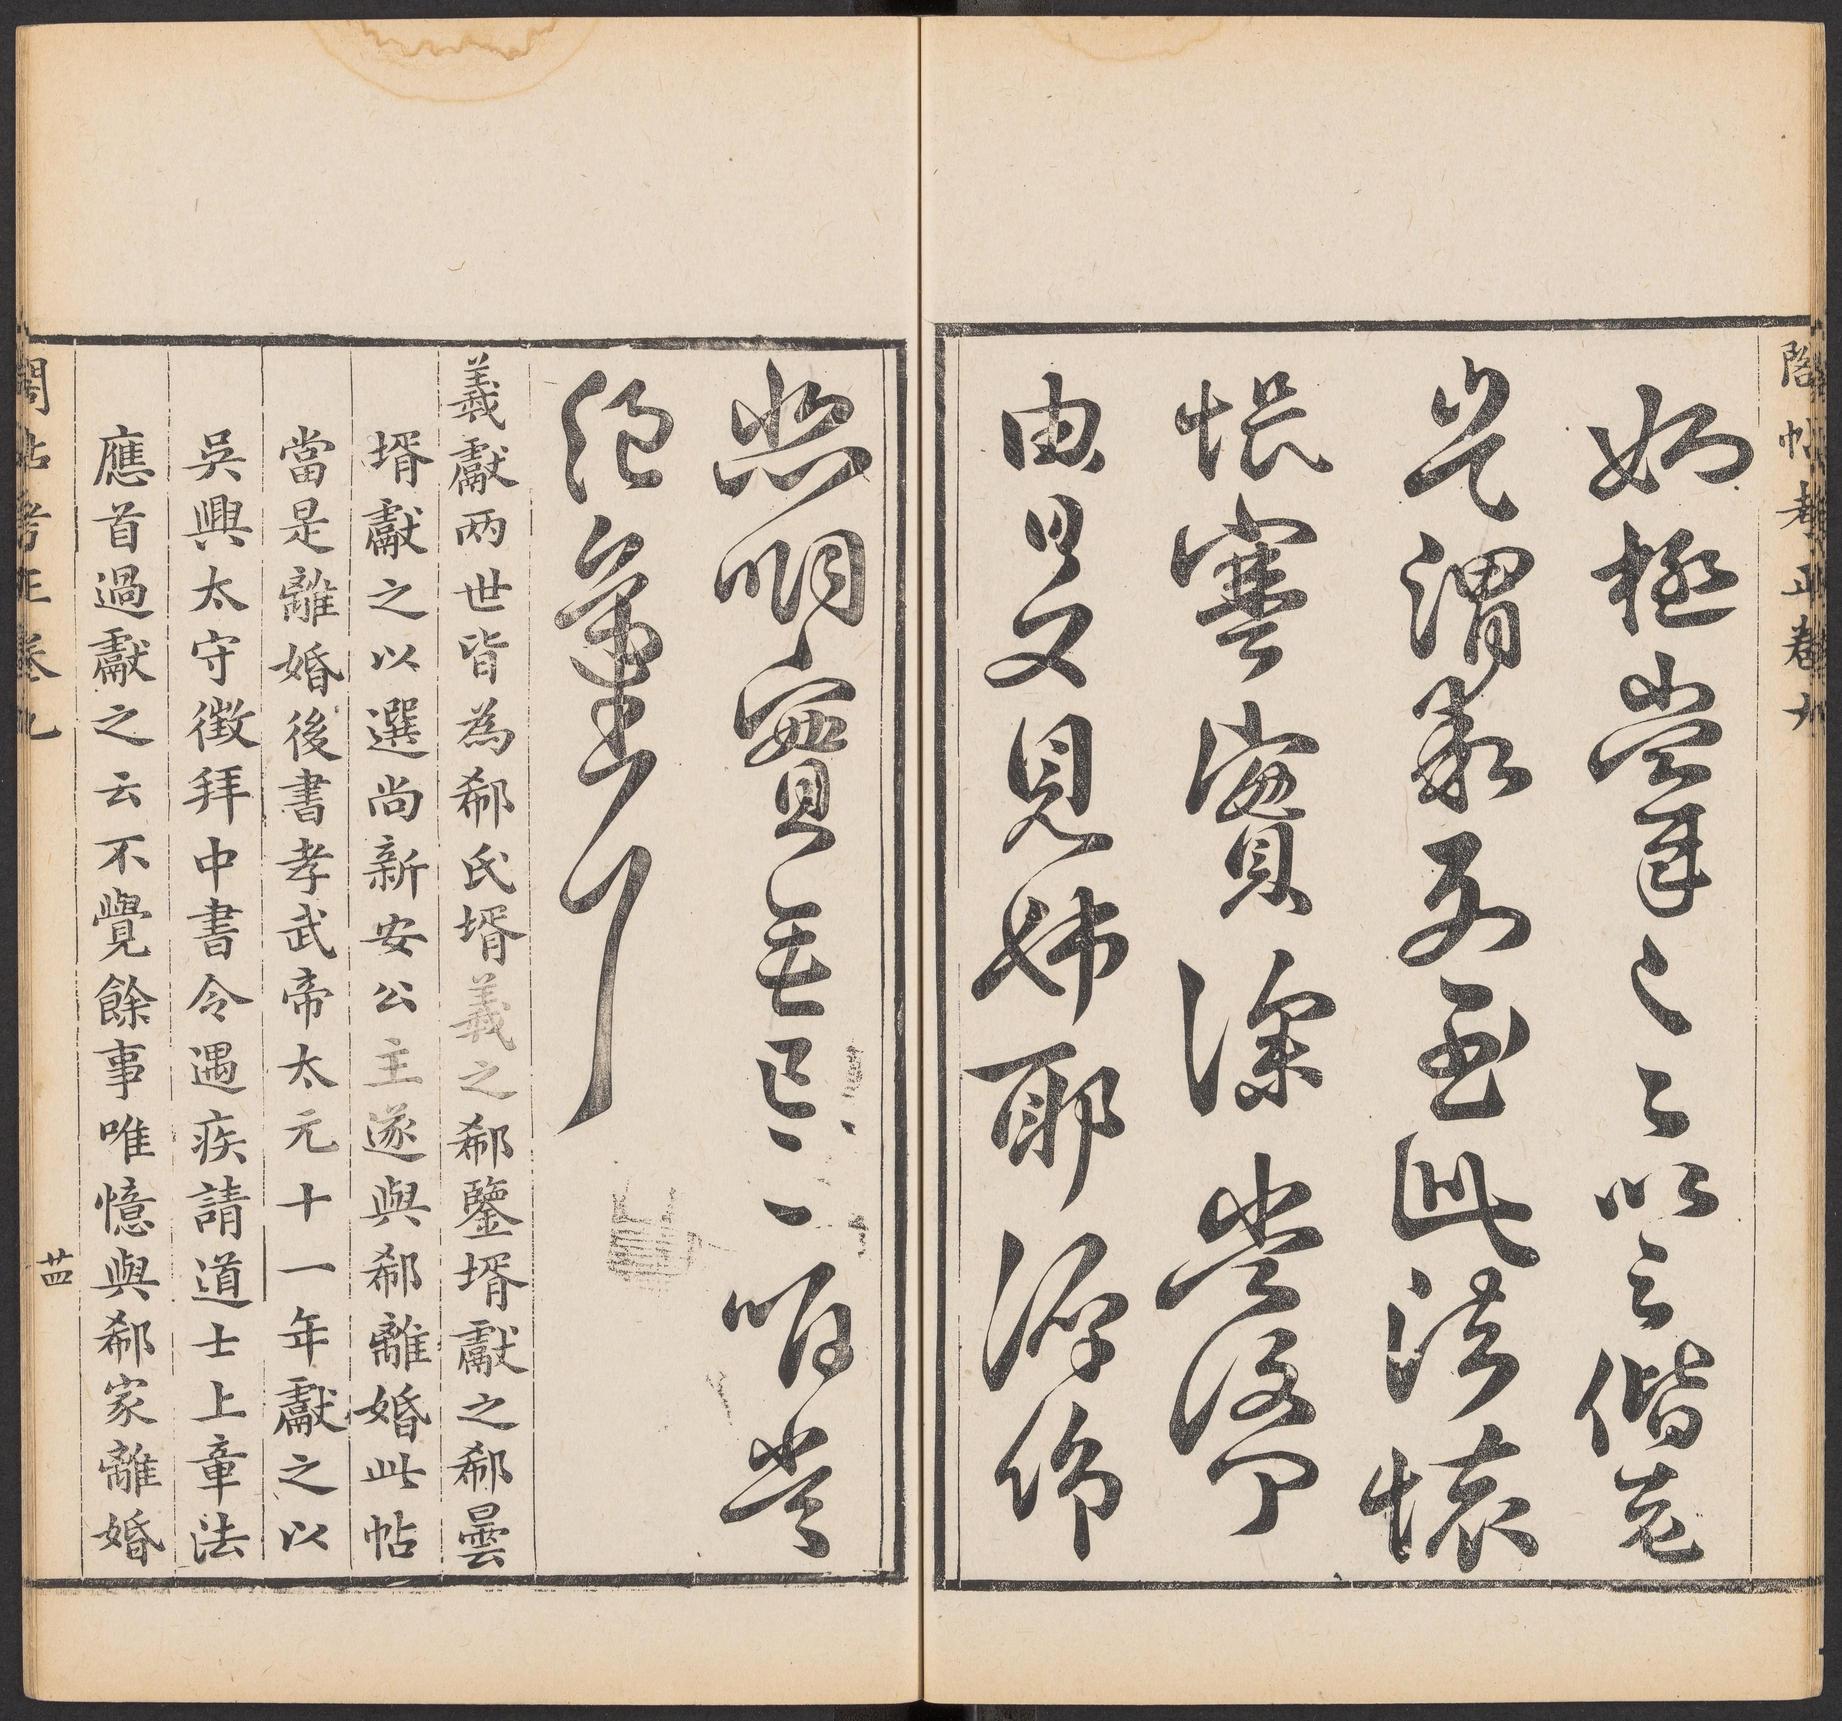 閣帖考正卷九
姊極當年之疋以之偕老
豈謂乖別至此諸懷
悵塞實深當復何
由日夕見姊耶俯仰
悲咽實無已已唯當
絕氣耳
羲獻两世皆為郗氏壻羲之郗鑒壻獻之郗曇
壻獻之以選尚新安公主遂與郗離婚此帖
當是離婚後書孝武帝太元十一年獻之以
吳興太守徵拜中書令遇疾請道士上章法
應首過獻之云不覺餘事唯憶與郗家離婚
閣帖考正卷九
廿四